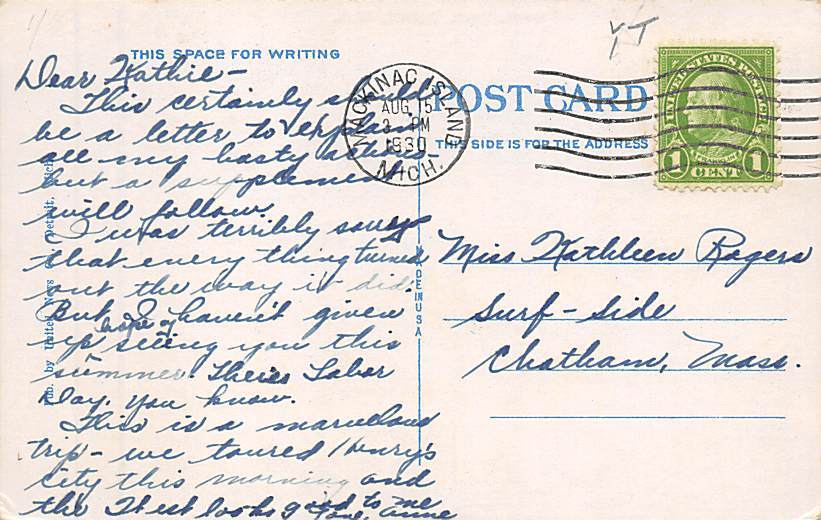 THIS SPACE FOR WRITING
Dear Kathie—
This certainly should
be a letter to explain
all my hasty actions
but a supplement
will follow.
I was terribly sorry
that every thing turned
out the way it did.
But I haven't given
up hope of seeing you this
summer. There's Labor
Day, you know.
This is a marvelous
trip - we toured Henry's
city this morning and
the West looks good to me
Love, Anne
Pub. by United News Detroit, Mich.
MADE IN USA
POST CARD
THIS SIDE IS FOR THE ADDRESS
MACKINAC ISLAND
AUG 15
3 PM
1930
MICH.
YT
UNITED STATES POSTAGE
FRANKLIN
1 CENT 1
Miss Kathleen Rogers
Surf-side
Chatham, Mass.